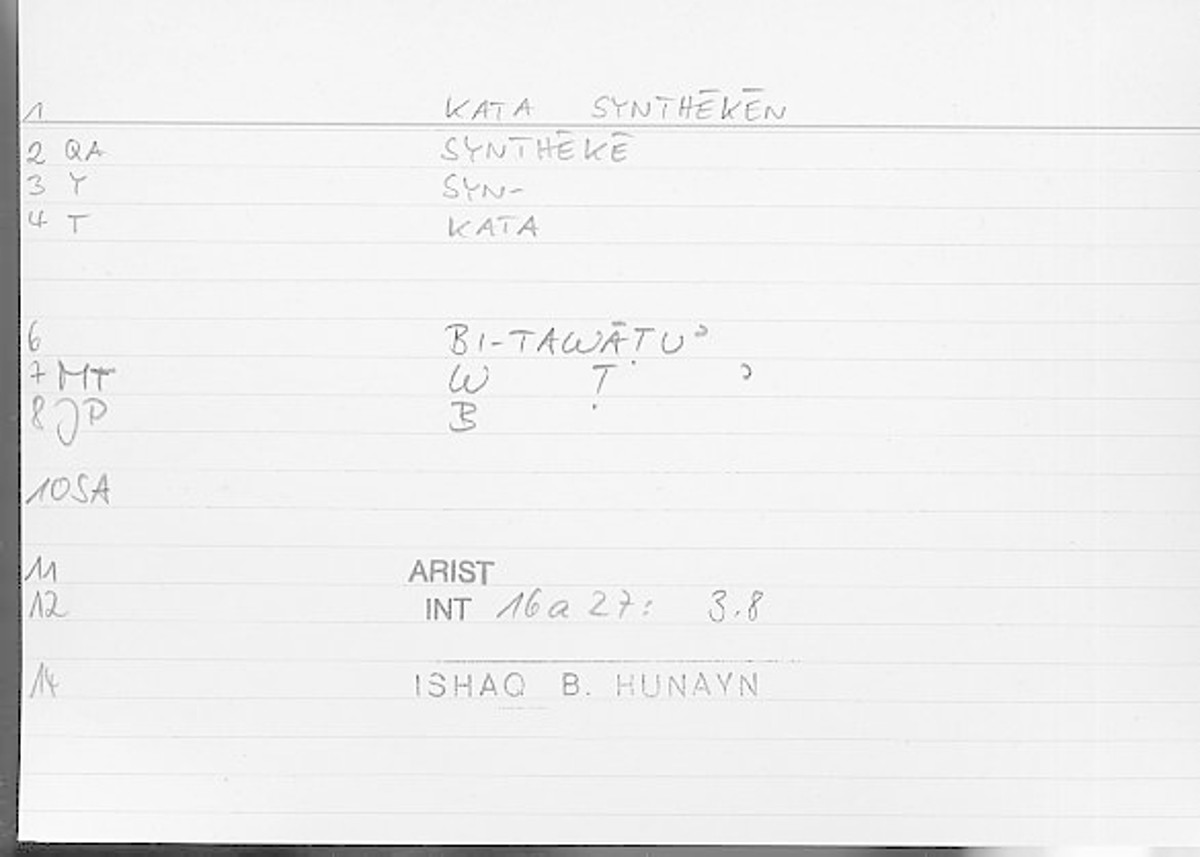 1 KATA SYNTHĒKĒN
2 QA SYNTHĒKĒ
3 Y SYN-
4 T KATA
6 BI-TAWĀṬUʾ
7 MT W Ṭ ʾ
8 JP B
10 SA
11 ARIST
12 INT 16a 27: 3.8
14 ISHAQ B. HUNAYN